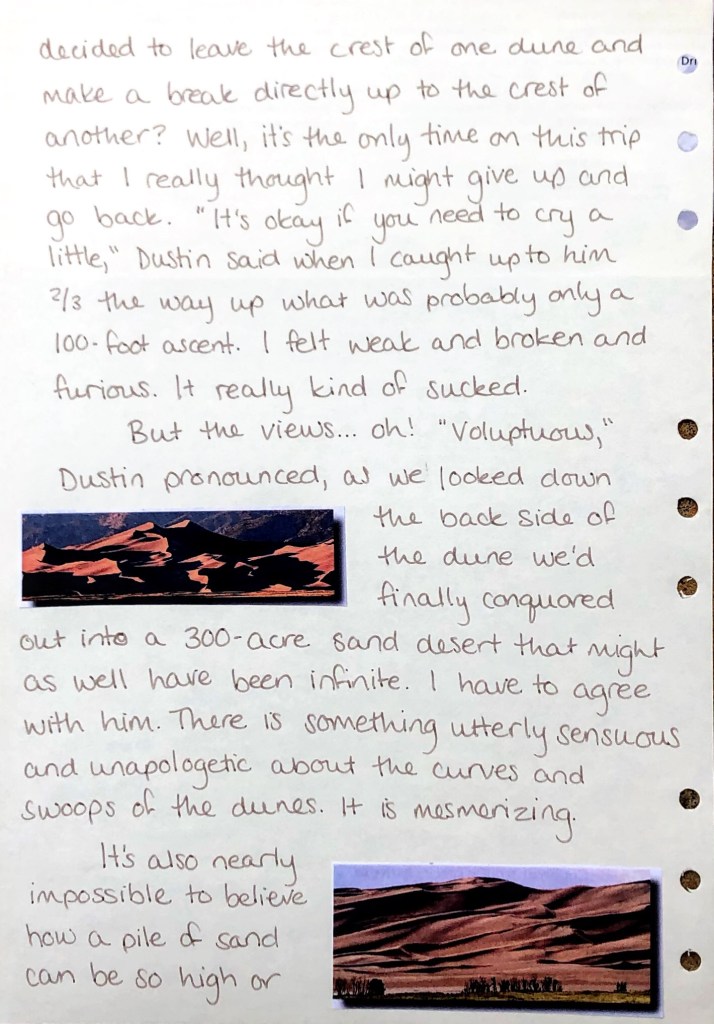 decided to leave the crest of one dune and
make a break directly up to the crest of
another? Well, it's the only time on this trip
that I really thought I might give up and
go back. "It's okay if you need to cry a
little," Dustin said when I caught up to him
2/3 the way up what was probably only a
100-foot ascent. I felt weak and broken and
furious. It really kind of sucked.
But the views... oh! "Voluptuous,"
Dustin pronounced, as we looked down
the back side of
the dune we'd
finally conquored
out into a 300-acre sand desert that might
as well have been infinite. I have to agree
with him. There is something utterly sensuous
and unapologetic about the curves and
swoops of the dunes. It is mesmerizing.
It's also nearly
impossible to believe
how a pile of sand
can be so high or
Dri